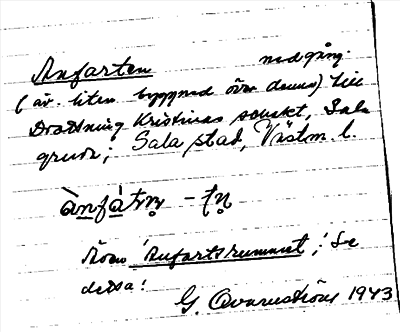 Anfarten nedgång.
(äv. liten byggnad över denna) till
Drottning Kristinas schakt, Sala
gruva; Sala stad, Västm. l.
ànfàtṇ -tṇ
Även 'Anfartsrummet'; Se
dessa!
G. 1943